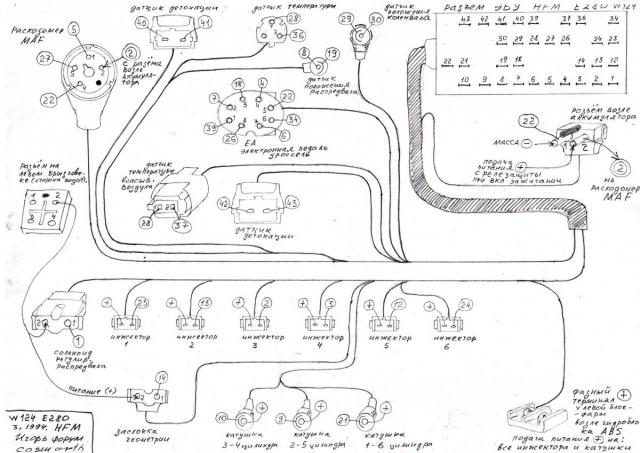 Расходомер
MAF
5
27
22
1
2
3
4
5
2
С разъёма
возле
аккумулятора
датчик детонации
40
41
датчик температуры
28
36
8
19
датчик
положения
Распредвала
29
30
датчик
положения
коленвала
Разъем ЭБУ HFM E280 W124
43 42 41 40 39 37 36 34
30 29 28 27 26 23
22 21 19 18 14 13 12
10 9 8 7 6 5 4 3 2 1
7
18
4
22
34
6
26
39
ЕА
электронная педаль
дроссель
22
Разъём возле
аккумулятора
МАССА
1
2
подача
питания +
с реле защиты
при вкл зажигании
2
на
Расходомер
MAF
Разъём на
левом брызгови-
ке (сторона водит.)
1 2
3 4
датчик
температуры
всасыв.
воздуха
1 2
28
37
42
43
датчик
детонации
2 1
1
соленоид
регулир.
распредвала
+ 23
инжектор
1
+ 13
инжектор
2
+ 2
инжектор
3
+ 3
инжектор
4
+ 12
инжектор
5
+ 24
инжектор
6
питание (+)
14
2 1
заслонка
геометрии
10 +
катушка
3-4 цилиндра
9 +
катушка
2-5 цилиндра
21 +
катушка
1-6 цилиндра
+
фазный
терминал
у левой блок-
фары
возле гидробло
ка ABS
подача питания + на:
все инжектора и катушки
W124 E280
3, 1994. HFM
Игорь форум
cosworth